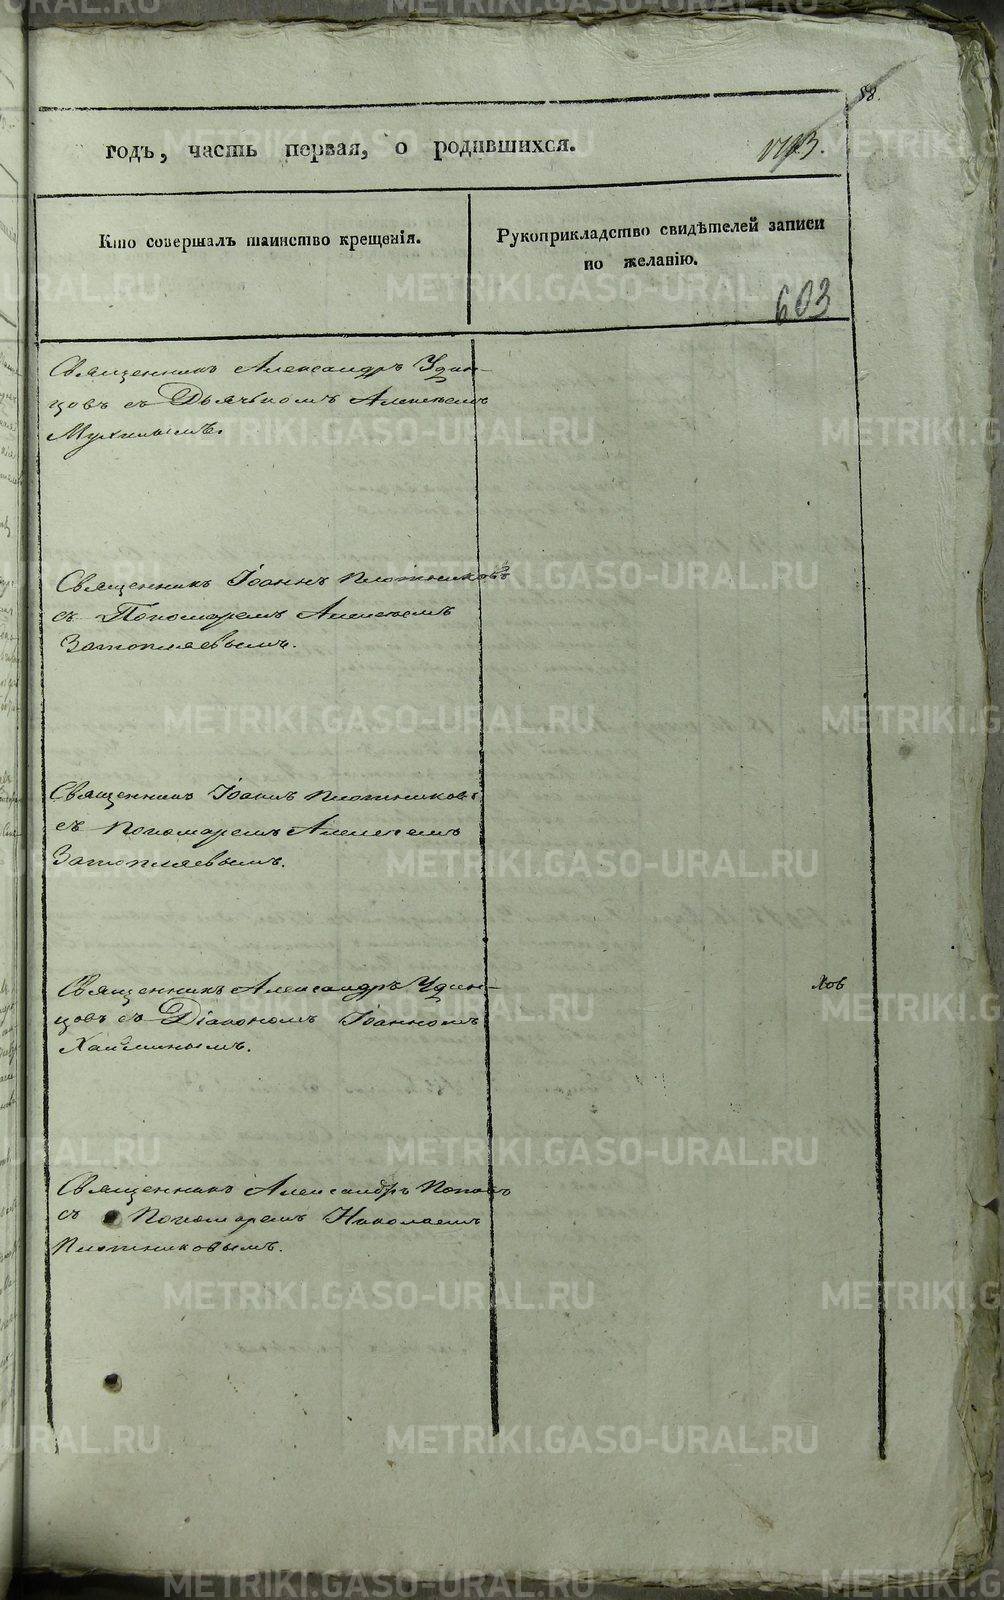 58.
годъ, часть первая, о родившихся.
Кто совершалъ таинство крещенія.
Рукоприкладство свидѣтелей записи
по желанію.
603
Священникъ Александръ Удин-
цовъ съ Дьячкомъ Алексѣемъ
Мухинымъ.
Священникъ Іоаннъ Плотниковъ
съ Пономаремъ Алексѣемъ
Затопляевымъ.
Священникъ Іоаннъ Плотниковъ
съ Пономаремъ Алексѣемъ
Затопляевымъ.
Священникъ Александръ Удин-
цовъ съ Діакономъ Іоанномъ
Хлѣбинымъ.
Священникъ Александръ Поповъ
съ Пономаремъ Николаемъ
Плотниковымъ.
METRIKI.GASO-URAL.RU